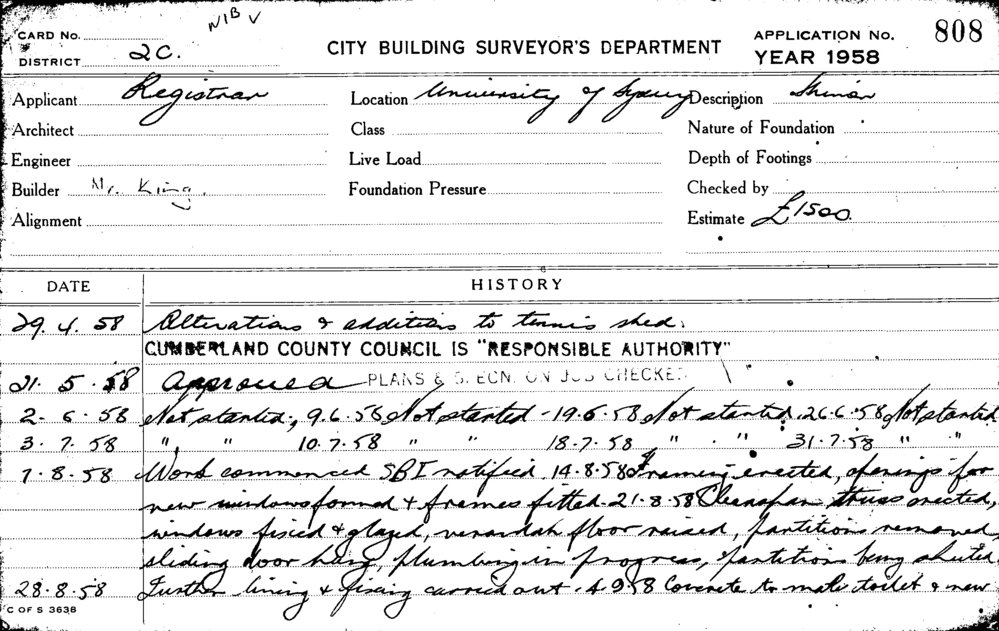 NIB ✓
CARD No.
DISTRICT 2C.
CITY BUILDING SURVEYOR'S DEPARTMENT
APPLICATION No. 808
YEAR 1958
Applicant Registrar Location University of Sydney Description
Architect Class Nature of Foundation
Engineer Live Load Depth of Footings
Builder Mr. King. Foundation Pressure Checked by
Alignment Estimate £1500
DATE HISTORY
29. 4. 58 Alterations & additions to tennis shed.
CUMBERLAND COUNTY COUNCIL IS "RESPONSIBLE AUTHORITY"
21. 5. 58 Approved PLANS & S. ECN. ON JOB CHECKED
2- 6. 58 Not started, 9.6.58 Not started - 19.6.58 Not started, 26.6.58 Not started
3. 7. 58 " " 10.7.58 " " 18.7.58 " " 31.7.58 " "
7. 8. 58 Work commenced SBI notified. 14.8.58 Framing erected, openings for
new windows formed & frames fitted - 21.8.58 truss erected,
windows fixed & glazed, verandah floor raised, partitions removed,
sliding door hung, plumbing in progress, partitions being sheeted,
28.8.58 Further lining & fixing carried out - 4.9.58 Concrete to male toilet & new
C OF S 3638